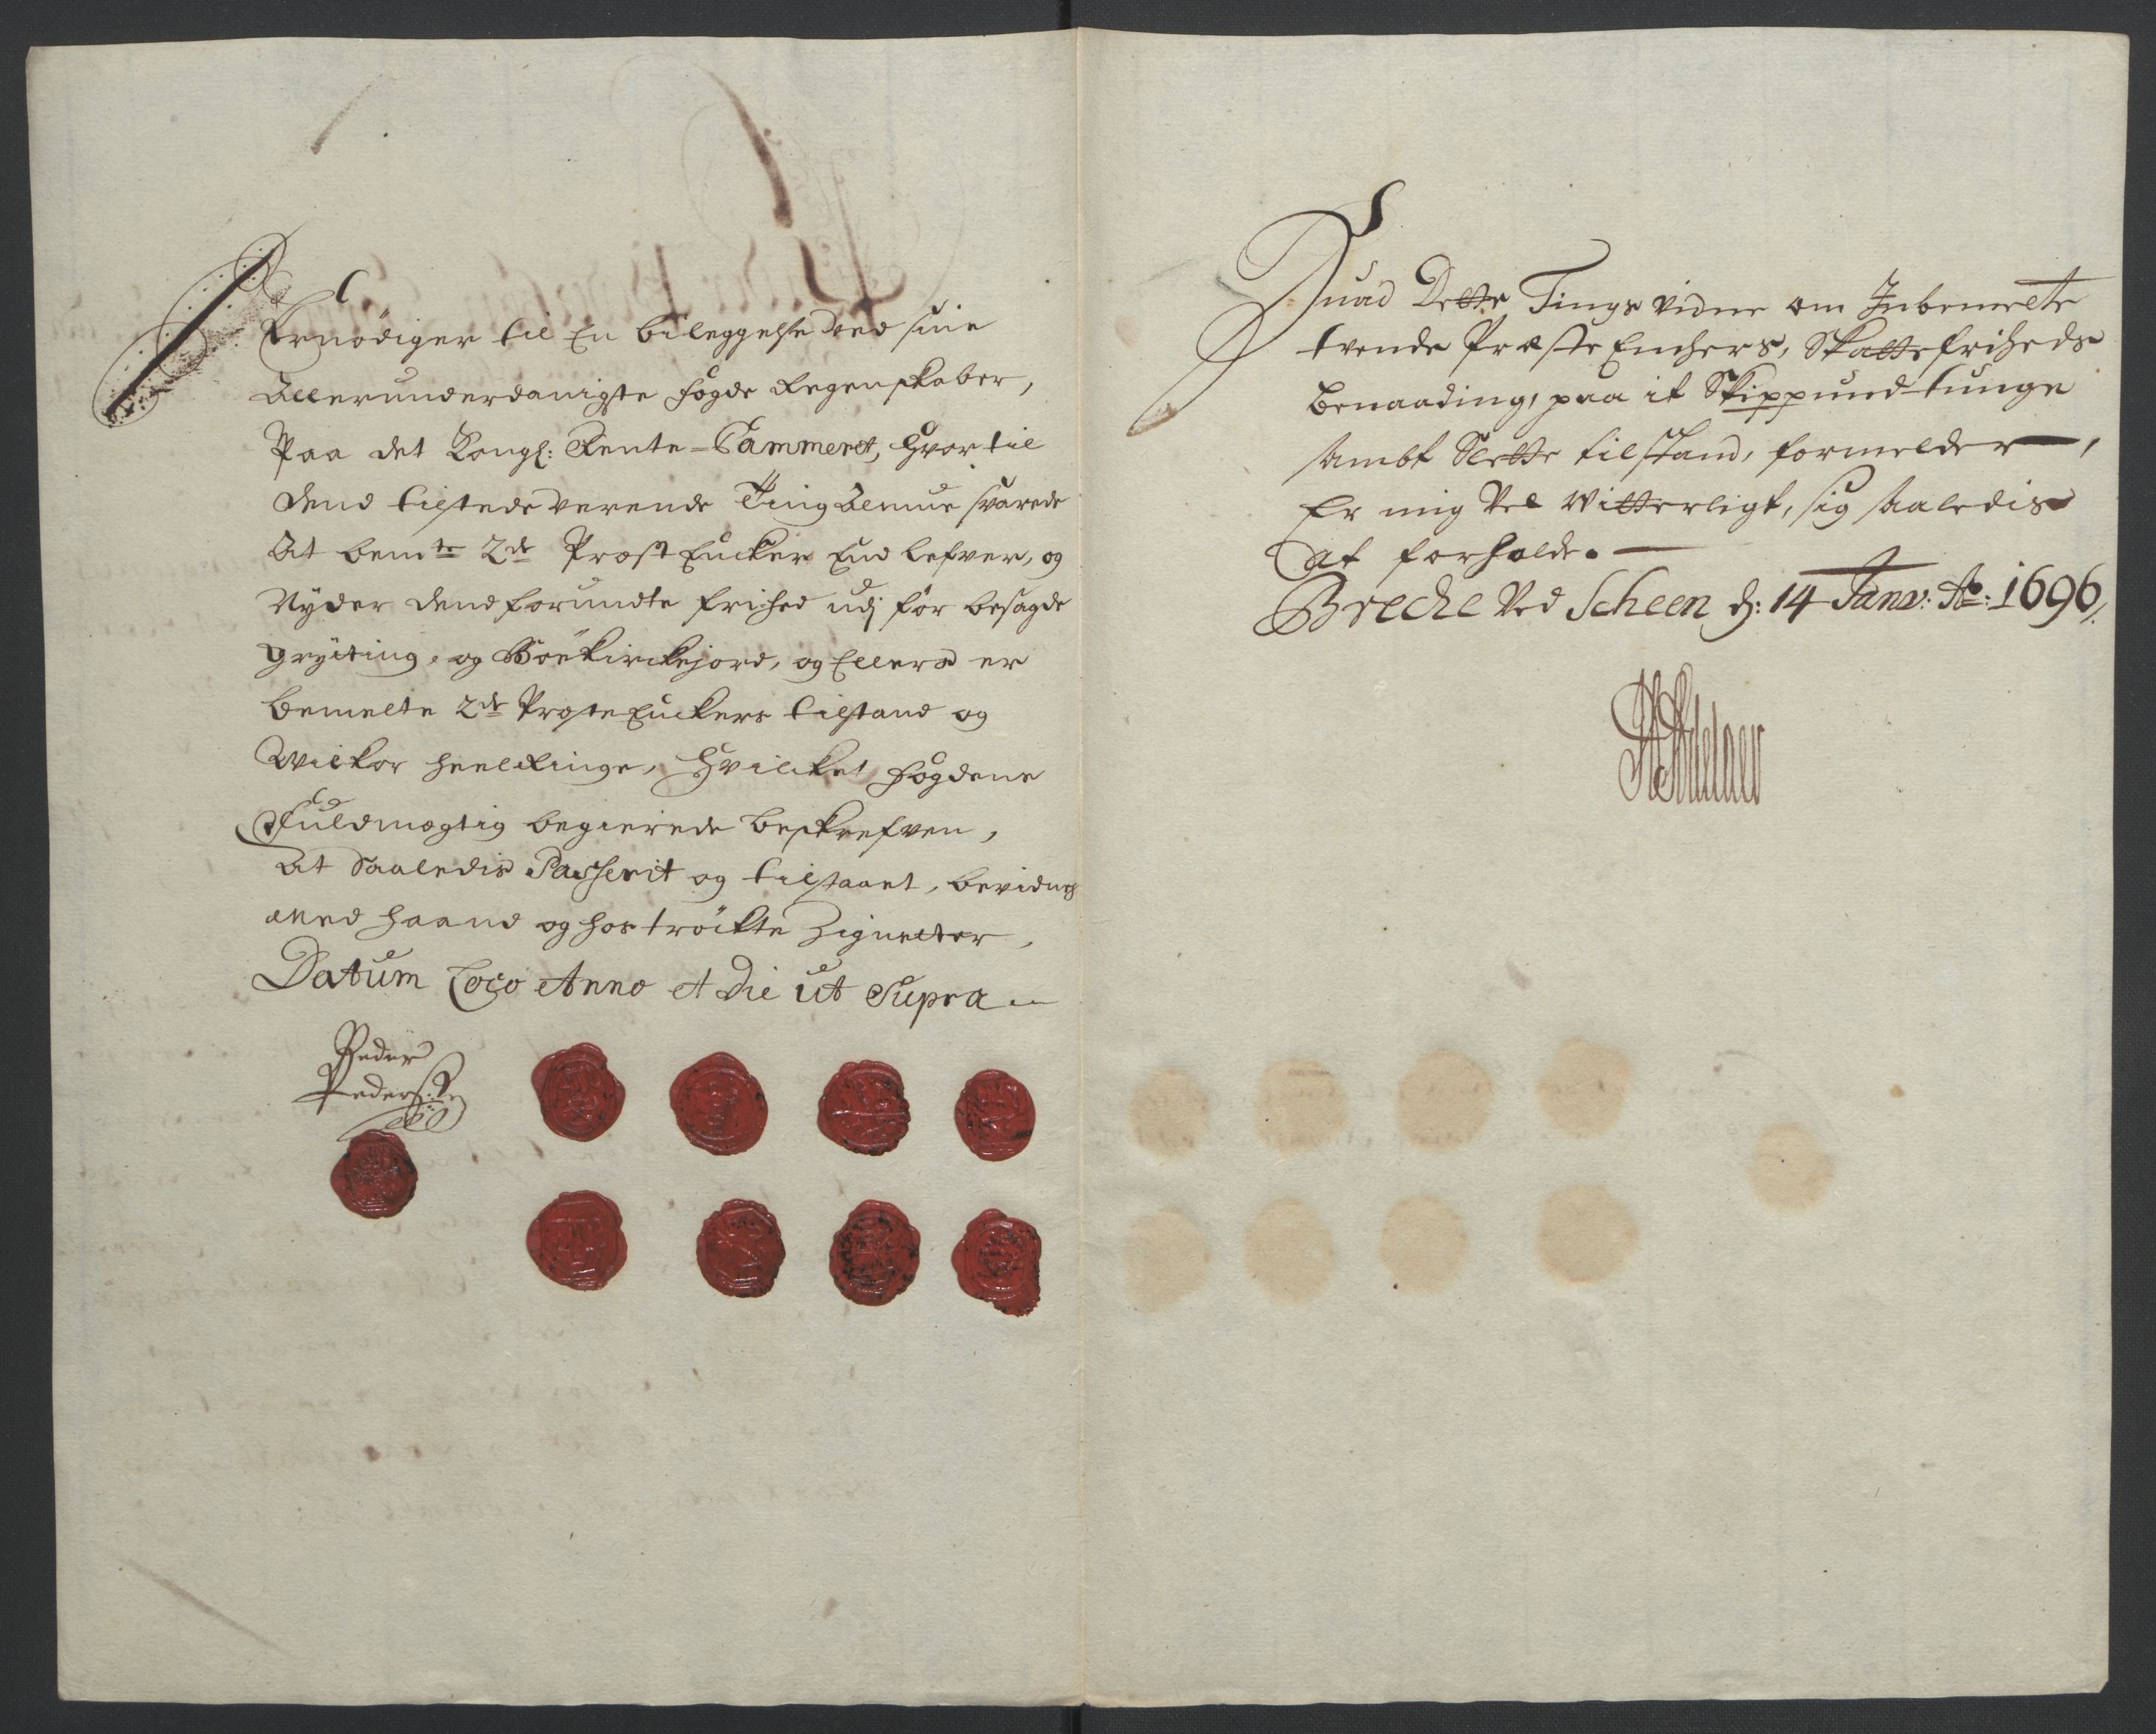 Fornödiger til En bileggelse ved sine
Allerunderdanigste fogde Regenskaber,
Paa det Kongl: Rente-Cammeret, Hvor til
dend tilstede verende Ting Almue svarede
At bemte 2de Præst Encker End lefver, og
Nyder dend forundte frihed udj för besagde
gryting, og Böe Kirckejord, og Ellers er
bemelte 2de Præste Enckers tilstand og
Wilkor heel Ringe, Hvilcket fogdens
Fuldmægtig begierede beskrefven,
At Saaledis Passerit og tilstaaet, bevidnes
Med haand og hos tröckte Zigneter,
Datum Loco Anno et Die ut Supra
Peder
Peders:
Huad Dette Tings vidne om Inbemelte
tvende Præste Enchers, Skatte friheds
Benaading, paa it Skippund tunge
sambt Slette tilstand, formelder,
Er mig Vel Witterligt, sig saaledis
at forholde.
Breche Ved Scheen d: 14 Janv: Ao: 1696,
Adelaer